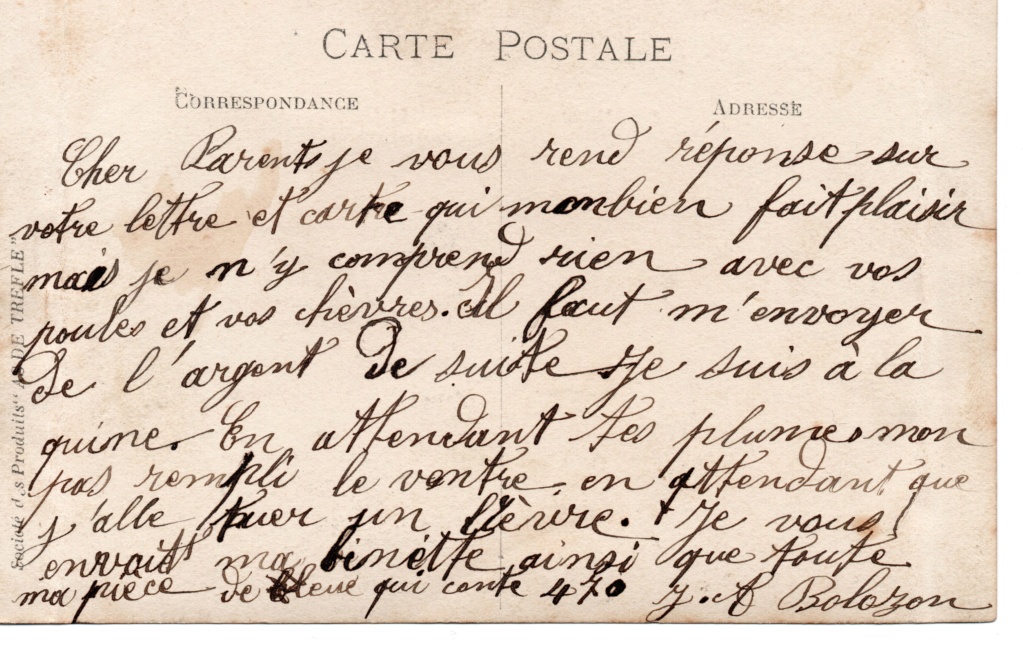 CARTE POSTALE
CORRESPONDANCE
ADRESSE
Cher Parents je vous rend réponse sur
votre lettre et carte qui monbien fait plaisir
mais je n'y comprend rien avec vos
poules et vos chèvres. il faut m'envoyer
De l'argent De suite Je suis à la
quine. En attendant tes plumes mon
pas rempli le ventre en attendant que
j'alle tuer un lièvre. Je vous
envoit ma binette ainsi que toute
ma pièce de qui conte 470 J. A Bolozon
Société des Produits "AS DE TREFLE"